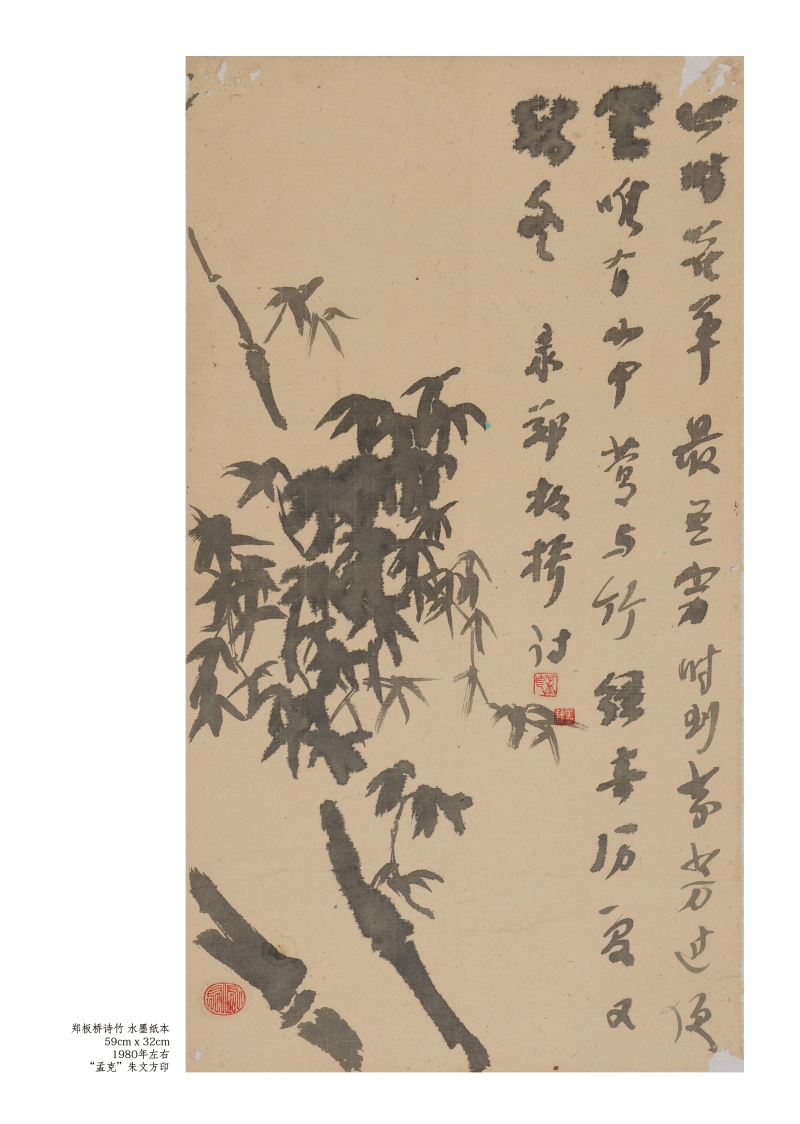 四時花草最无穷时到芬芳过便
空唯有山中兰与竹經春历夏又
秋冬 录郑板桥诗
郑板桥诗竹 水墨纸本
59cm x 32cm
1980年左右
“孟克”朱文方印